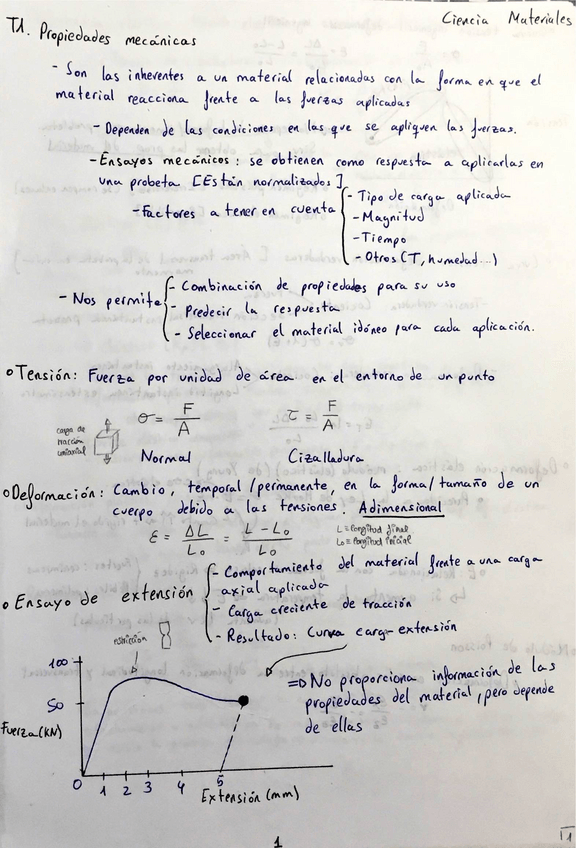 Ciencia Materiales
T1. Propiedades mecánicas
- Son las inherentes a un material relacionadas con la forma en que el
material reacciona frente a las fuerzas aplicadas
- Dependen de las condiciones en las que se apliquen las fuerzas.
- Ensayos mecánicos: se obtienen como respuesta a aplicarlas en
una probeta [Están normalizados]
- Factores a tener en cuenta
- Tipo de carga aplicada
- Magnitud
- Tiempo
- Otros (T, humedad...)
- Nos permite
- Combinación de propiedades para su uso
- Predecir la respuesta
- Seleccionar el material idóneo para cada aplicación.
o Tensión: Fuerza por unidad de área en el entorno de un punto
carga de
tracción
uniaxial
σ = F/A
τ = F/A
Normal
Cizalladura
o Deformación: Cambio, temporal/permanente, en la forma/tamaño de un
cuerpo debido a las tensiones. Adimensional
ε = ΔL/L₀ = L - L₀/L₀
L ≡ longitud final
L₀ ≡ longitud inicial
o Ensayo de extensión
- Comportamiento del material frente a una carga
axial aplicada
- Carga creciente de tracción
- Resultado: Curva carga-extensión
estricción
100
50
Fuerza (KN)
0 1 2 3 4 5
Extensión (mm)
⇒ No proporciona información de las
propiedades del material, pero depende
de ellas
1